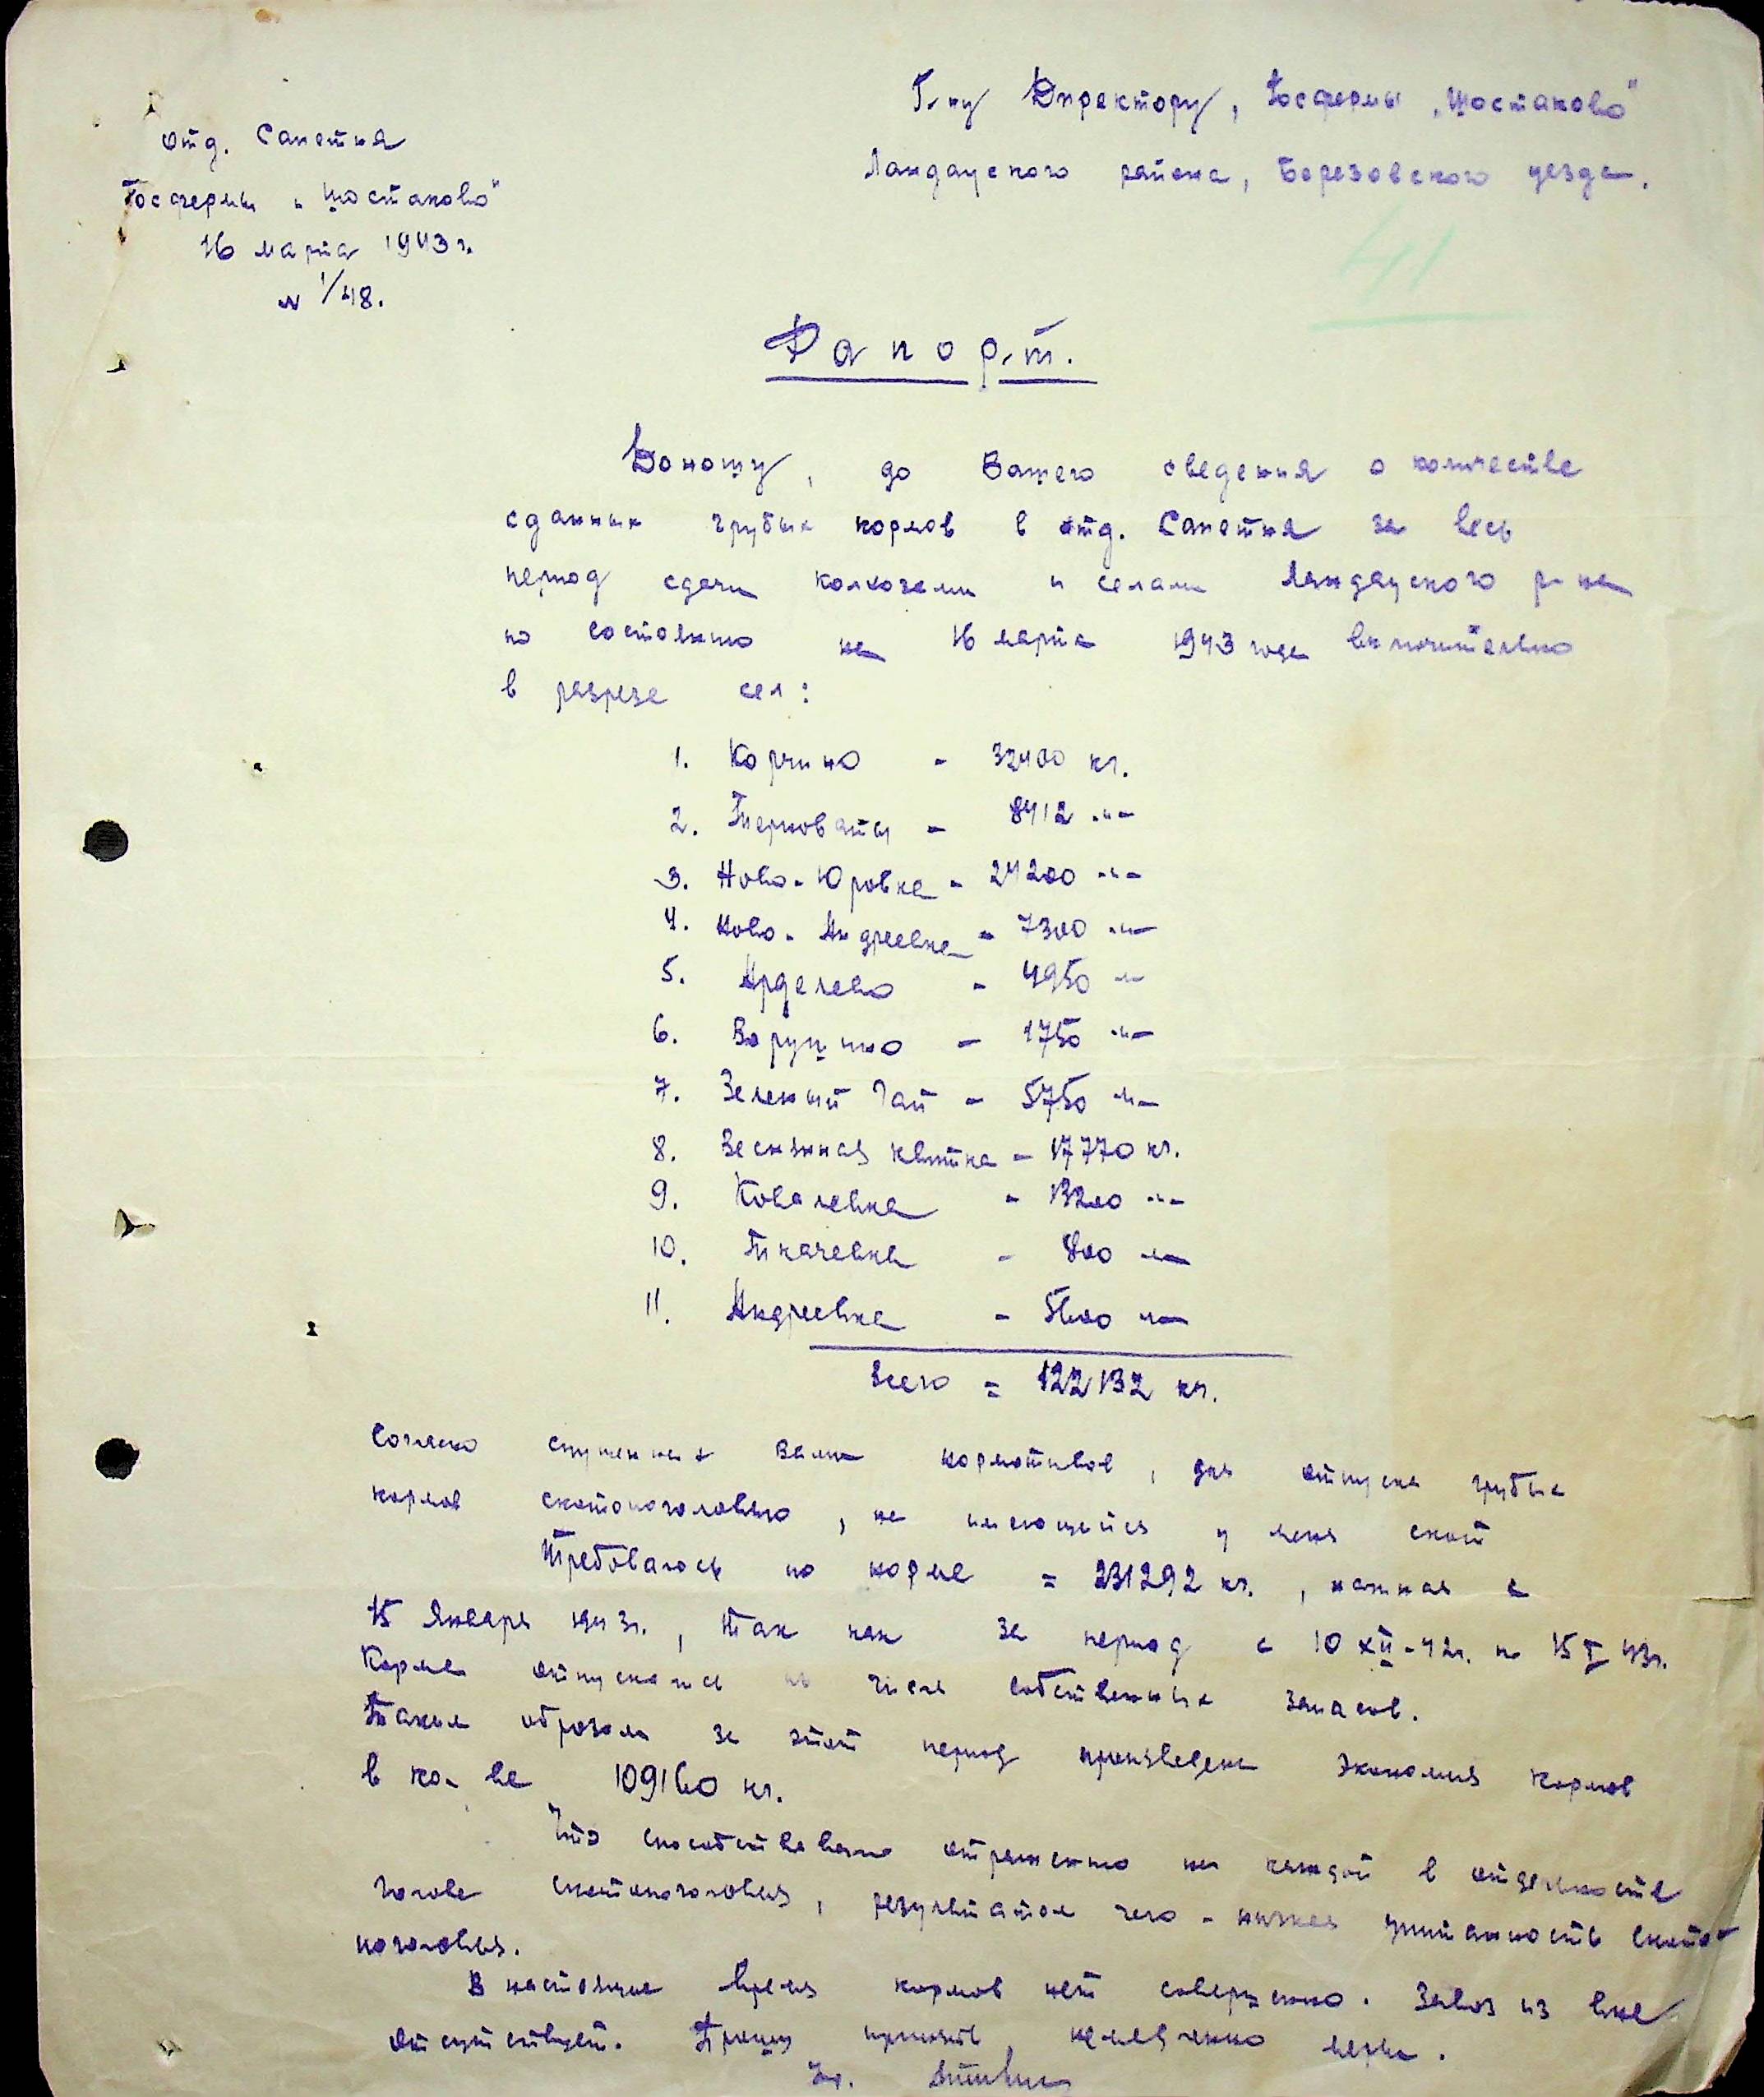 Г-ну Директору, Госфермы „Шостаково"
Ландауского района, Березовского уезда.
Отд. Сапетня
Госфермы „Шостаково"
16 марта 1943 г.
N 1/48.
41
Рапорт.
Доношу, до Вашего сведения о количестве
сданных грубых кормов в отд. Сапетня за весь
период сдачи колхозами и селами Ландауского р-на
по состоянию на 16 марта 1943 года включительно
в разрезе сел:
1. Корчино - 32400 кг.
2. Терноваты - 8412 -"-
3. Ново-Юровка - 24200 -"-
4. Ново-Андреевка - 7300 -"-
5. Арделево - 4950 -"-
6. Варушино - 1750 -"-
7. Зеленый Гай - 5750 -"-
8. Веснянная Квитка - 17770 кг.
9. Ковалевка - 13200 -"-
10. Ткачевка - 800 -"-
11. Андреевка - 5600 -"-
Всего = 122132 кг.
Согласно спущенных Вами нормативов, для отпуска грубых
кормов скотопоголовью, на имеющейся у меня скот
Требовалось по норме = 231292 кг., начиная с
15 Января 1943г., так как за период с 10 XII-42г. по 15 I 43г.
Корма отпускались из числа собственных запасов.
Таким образом за этот период произведена экономия кормов
в кол-ве 109160 кг.
Что способствовало отражению на каждой в отдельности
голове скотопоголовья, результатом чего - низкая упитанность ската-
поголовья.
В настоящие время кормов нет совершенно. Завоз из вне
отсутствует. Прошу принять немедленно меры.